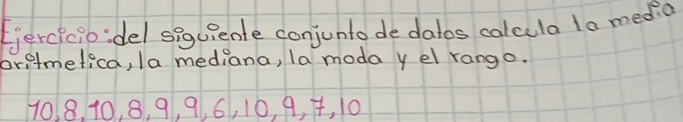 Ejercicio: del siguiente conjunto de datos calcula la media
aritmetica, la mediana, la moda y el rango.
10, 8, 10, 8, 9, 9, 6, 10, 9, 7, 10